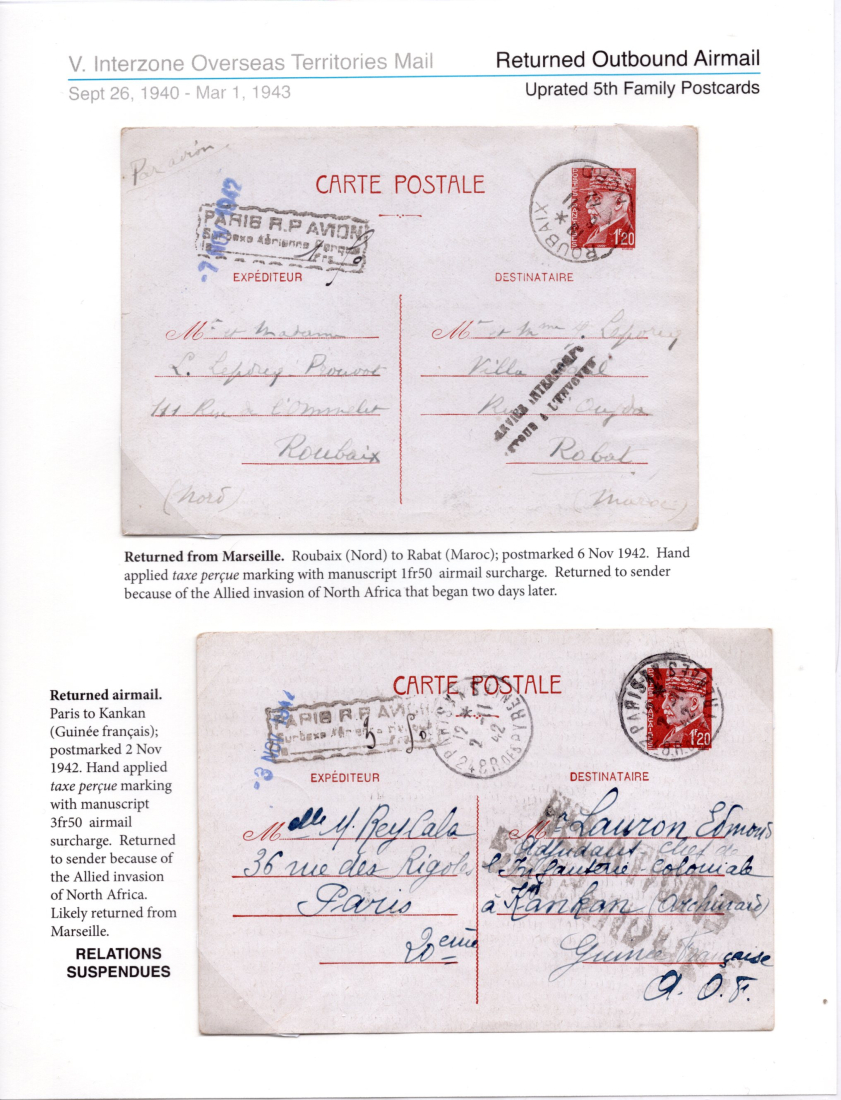 V. Interzone Overseas Territories Mail
Returned Outbound Airmail
Sept 26, 1940 - Mar 1, 1943
Uprated 5th Family Postcards
Par avion
CARTE POSTALE
-7 NOV 1942
PARIS R.P AVION
Surtaxe Aérienne Perçue
ROUBAIX
1f20
EXPÉDITEUR
DESTINATAIRE
Mr et Madame
L. Leporcq Prouvost
111 Rue de l'Ommelet
Roubaix
(Nord)
Mr et Mme
Villa
Rue Oujda
Rabat
(Maroc)
RETOUR A L'ENVOYEUR
Returned from Marseille. Roubaix (Nord) to Rabat (Maroc); postmarked 6 Nov 1942. Hand
applied taxe perçue marking with manuscript 1fr50 airmail surcharge. Returned to sender
because of the Allied invasion of North Africa that began two days later.
Returned airmail.
Paris to Kankan
(Guinée français);
postmarked 2 Nov
1942. Hand applied
taxe perçue marking
with manuscript
3fr50 airmail
surcharge. Returned
to sender because of
the Allied invasion
of North Africa.
Likely returned from
Marseille.
RELATIONS
SUSPENDUES
CARTE POSTALE
PARIS R.P AVION
1f20
EXPÉDITEUR
DESTINATAIRE
Melle M. Reylala
36 rue des Rigoles
Paris
20eme
Mr Lauron Edmond
Adjudant chef
Infanterie coloniale
à Kankan (Archinard)
Guinée Française
A. O. F.